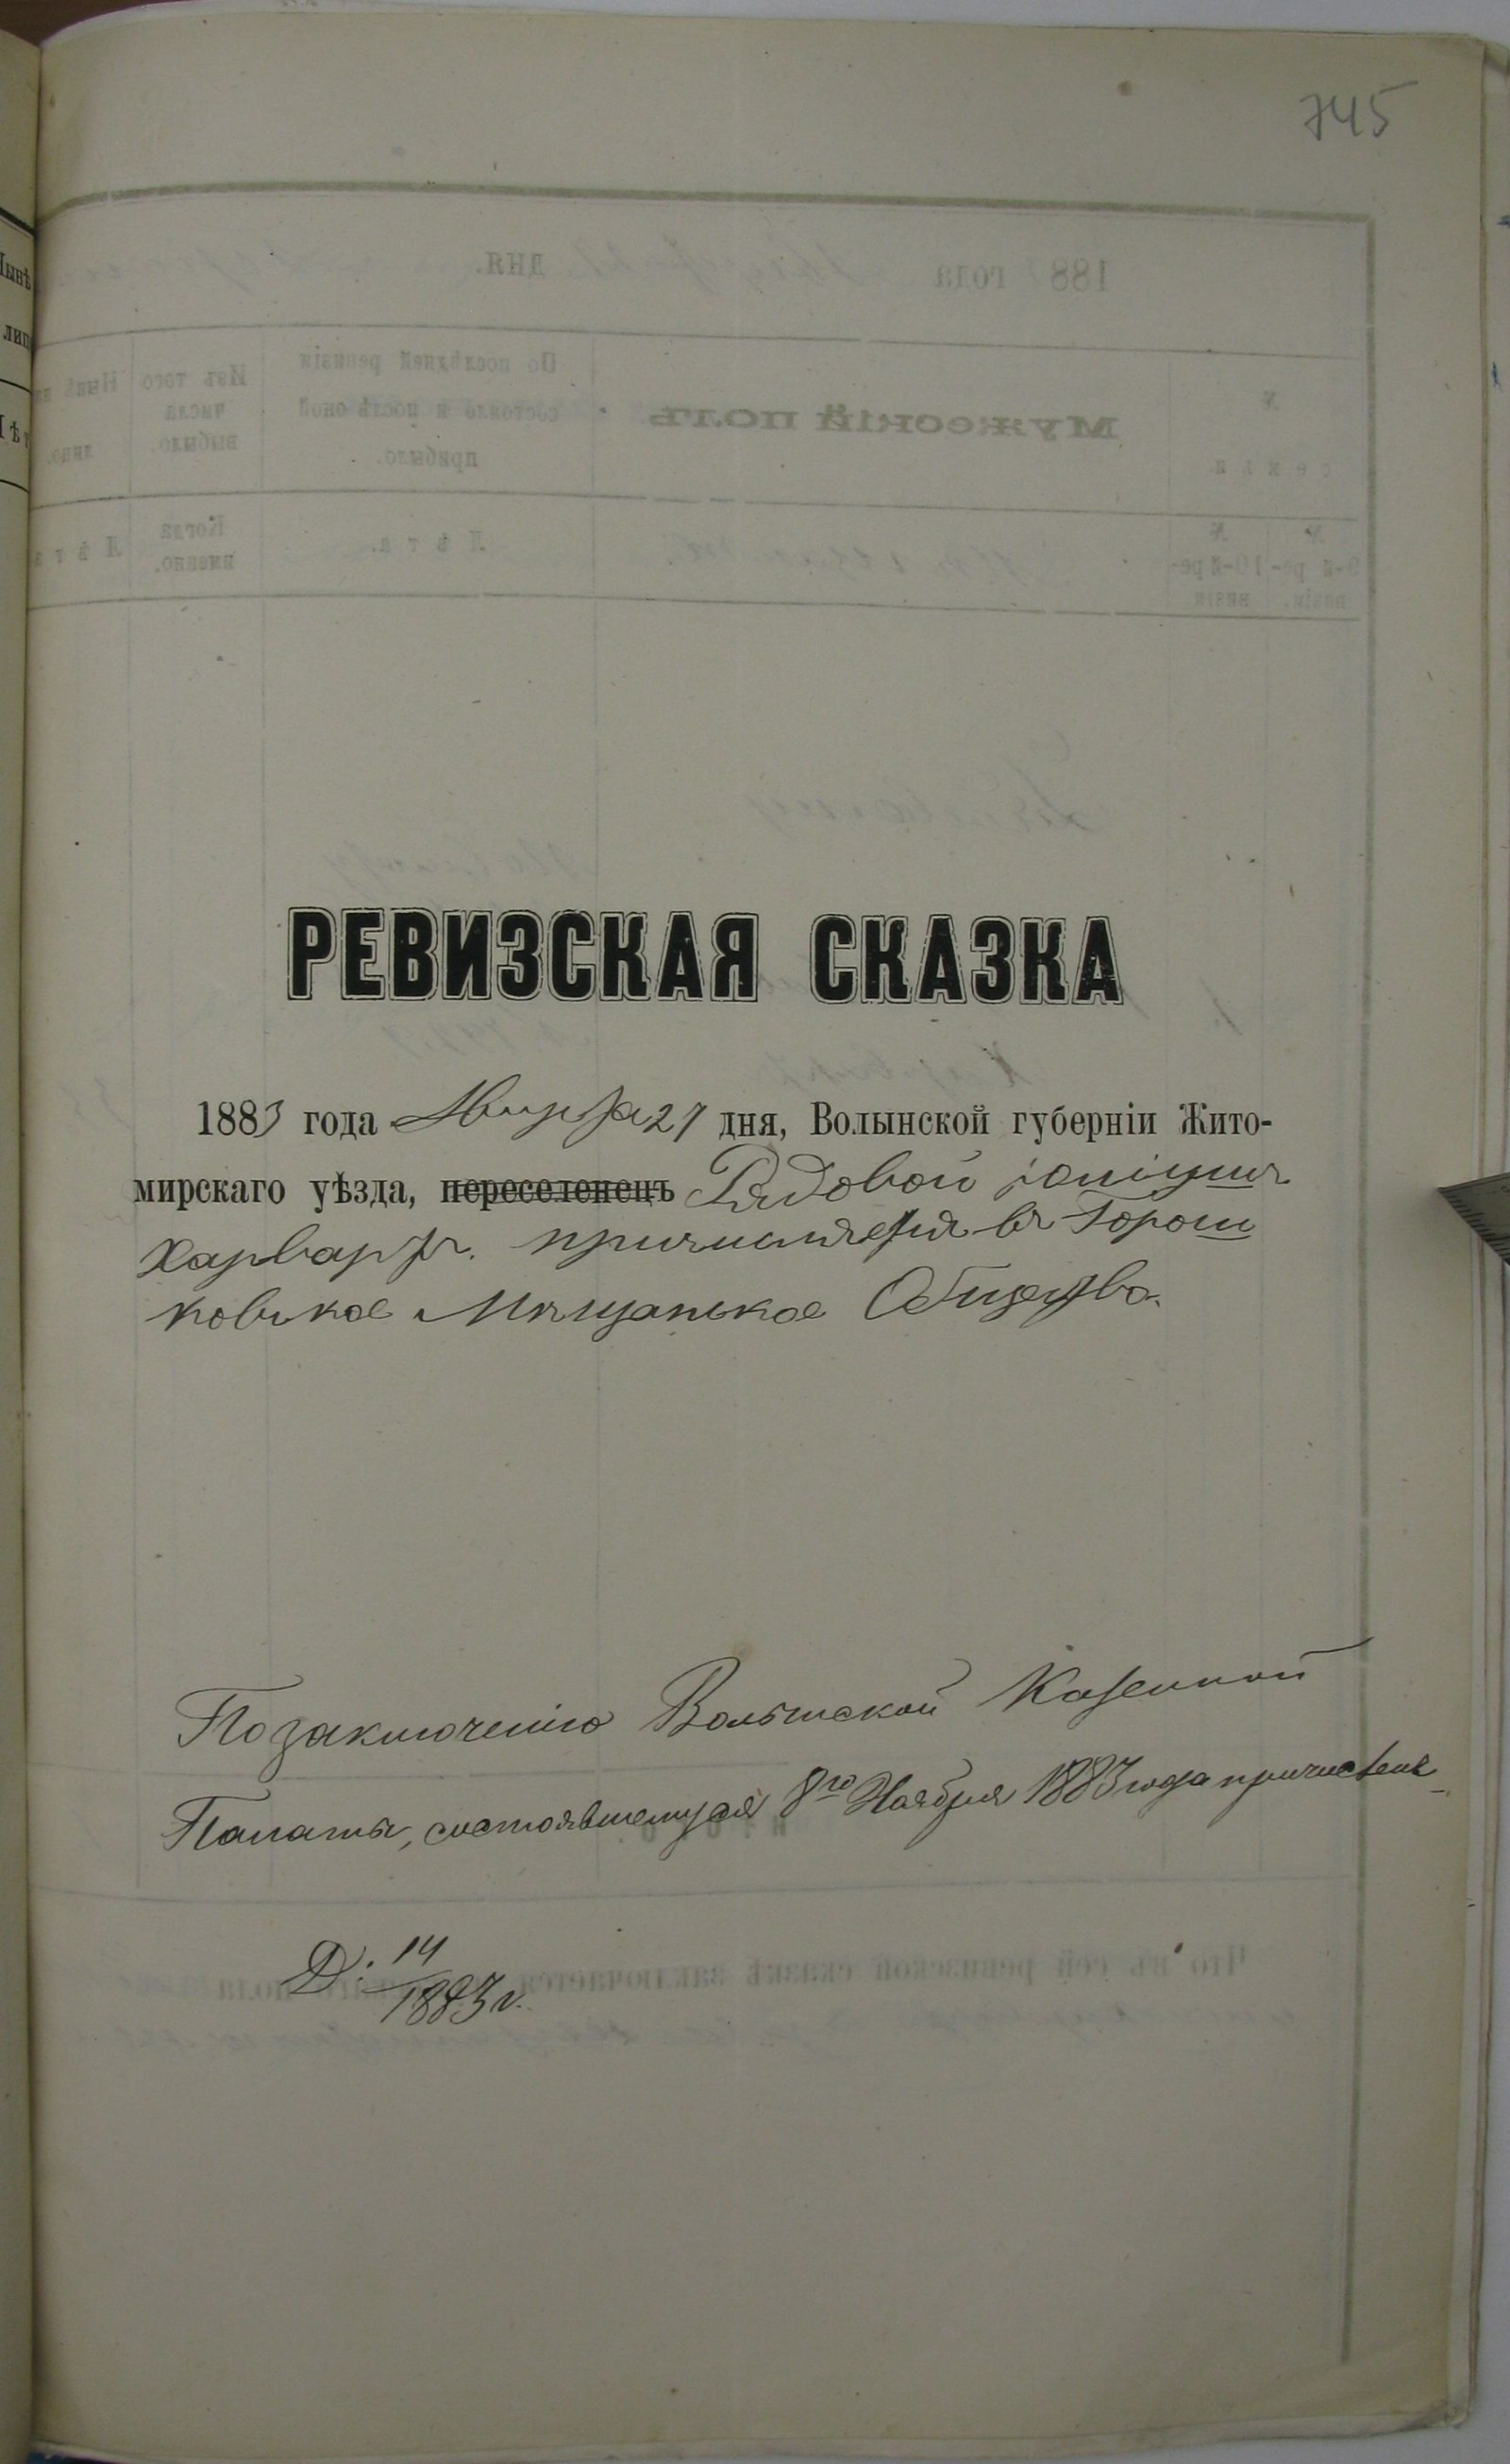 745
РЕВИЗСКАЯ СКАЗКА
1883 года Августа 27 дня, Волынской губерніи Жито-
мирскаго уѣзда, переселенецъ Рядовой
Харвартъ. причисляется въ Горош
ковское Мѣщанское Общество.
По заключенію Волынской Казенной
Палаты, состоявшемуся 8го Ноября 1883 года причислень
Д: 14
1883 г.